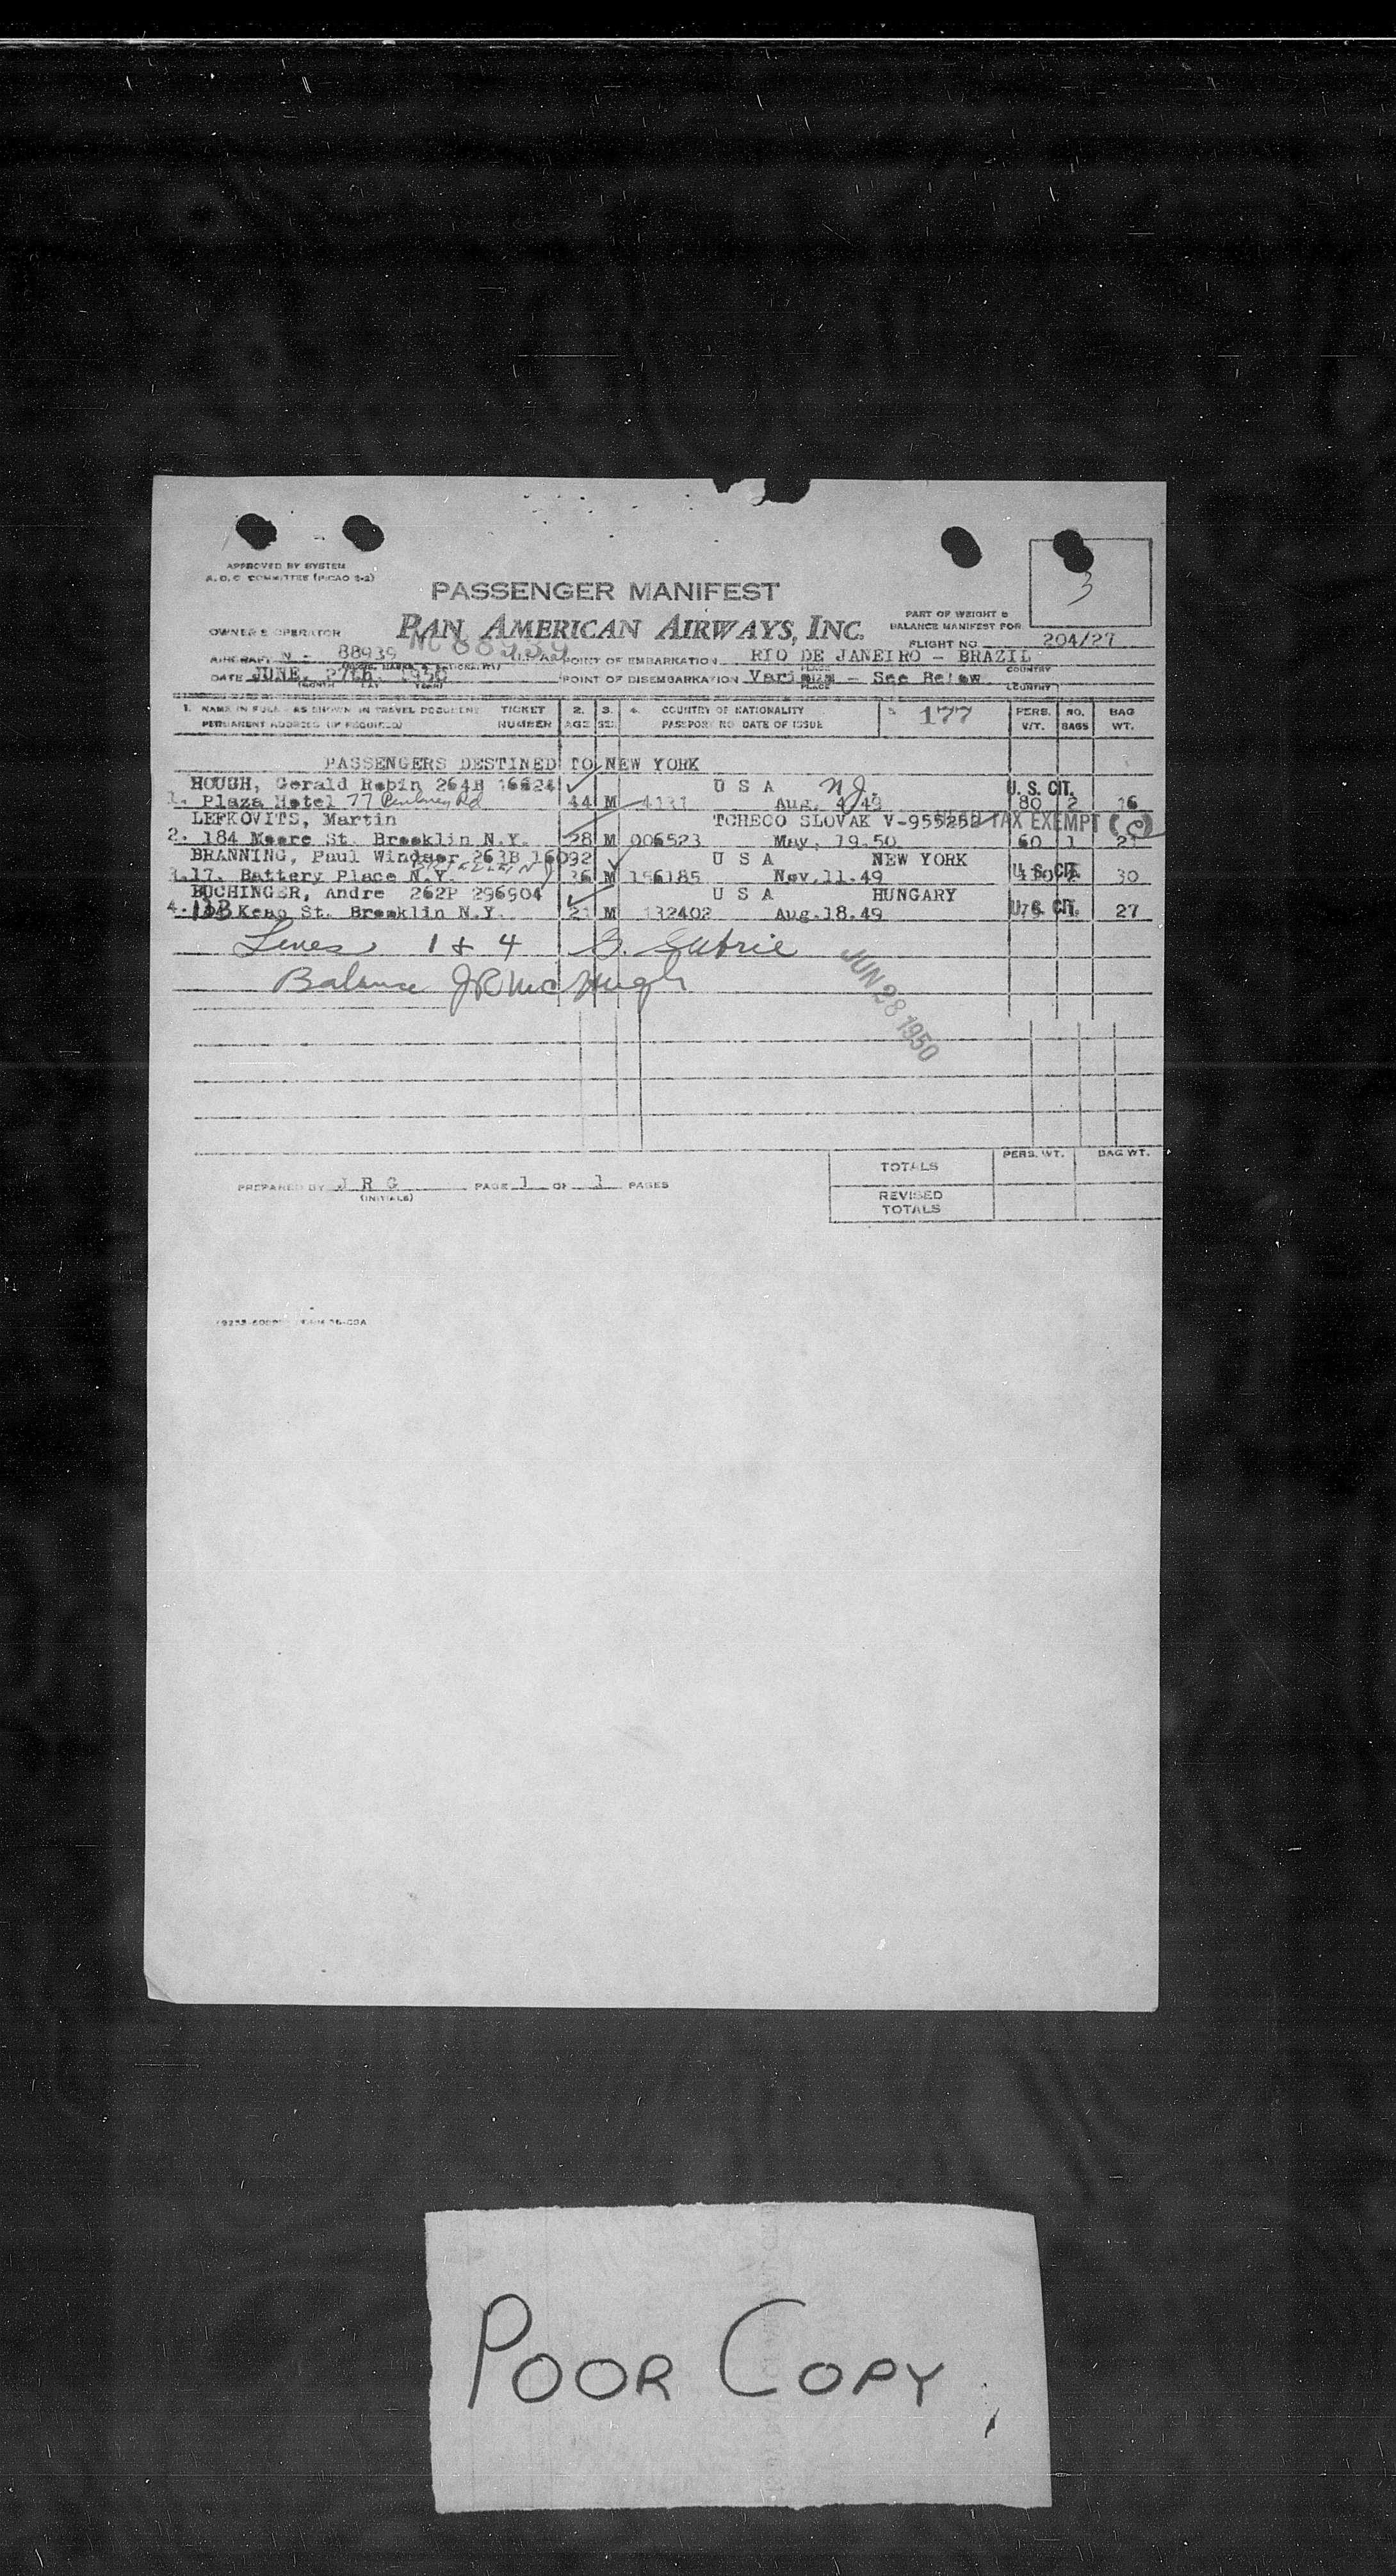 3
APPROVED BY SYSTEM
A.D.C COMMITTEE (PICAO 2-2)
PASSENGER MANIFEST
PAN AMERICAN AIRWAYS, INC.
PART OF WEIGHT &
BALANCE MANIFEST FOR
OWNER & OPERATOR
FLIGHT NO 204/27
AIRCRAFT N - 88939 POINT OF EMBARKATION RIO DE JANEIRO - BRAZIL
PLACE COUNTRY
DATE JUNE, 27th. 1950 POINT OF DISEMBARKATION Various - See Below
PLACE COUNTRY
1. NAME IN FULL - AS SHOWN IN TRAVEL DOCUMENT TICKET 2. 3. 4. COUNTRY OF NATIONALITY 5 177 PERS. NO. BAG
PERMANENT ADDRESS (IF REQUIRED) NUMBER AGE SEX PASSPORT NO DATE OF ISSUE WT. BAGS WT.
PASSENGERS DESTINED TO NEW YORK
HOUGH, Gerald Robin 264B 16624 U S A N.J. U. S. CIT.
1. Plaza Hotel 77 Rd 44 M 4131 Aug. 4 49 80 2 16
LEFKOVITS, Martin TCHECO SLOVAK V-955252 TAX EXEMPT
2. 184 Moore St. Brooklin N.Y. 28 M 006523 May, 19.50 60 1 21
BRANNING, Paul Windsor 263B 16092 U S A NEW YORK
3.17. Battery Place N.Y. 36 M 156185 Nov.11.49 U. S. CIT. 30
BUCHINGER, Andre 262P 296904 U S A HUNGARY
4. Keap St. Brooklin N.Y. 21 M 132402 Aug.18.49 U. S. CIT. 27
Lines 1 & 4 G. Guthrie
Balance JR McHugh
JUN 28 1950
PERS. WT. BAG WT.
TOTALS
PREPARED BY J R G PAGE 1 OF 1 PAGES
(INITIALS)
REVISED
TOTALS
POOR COPY